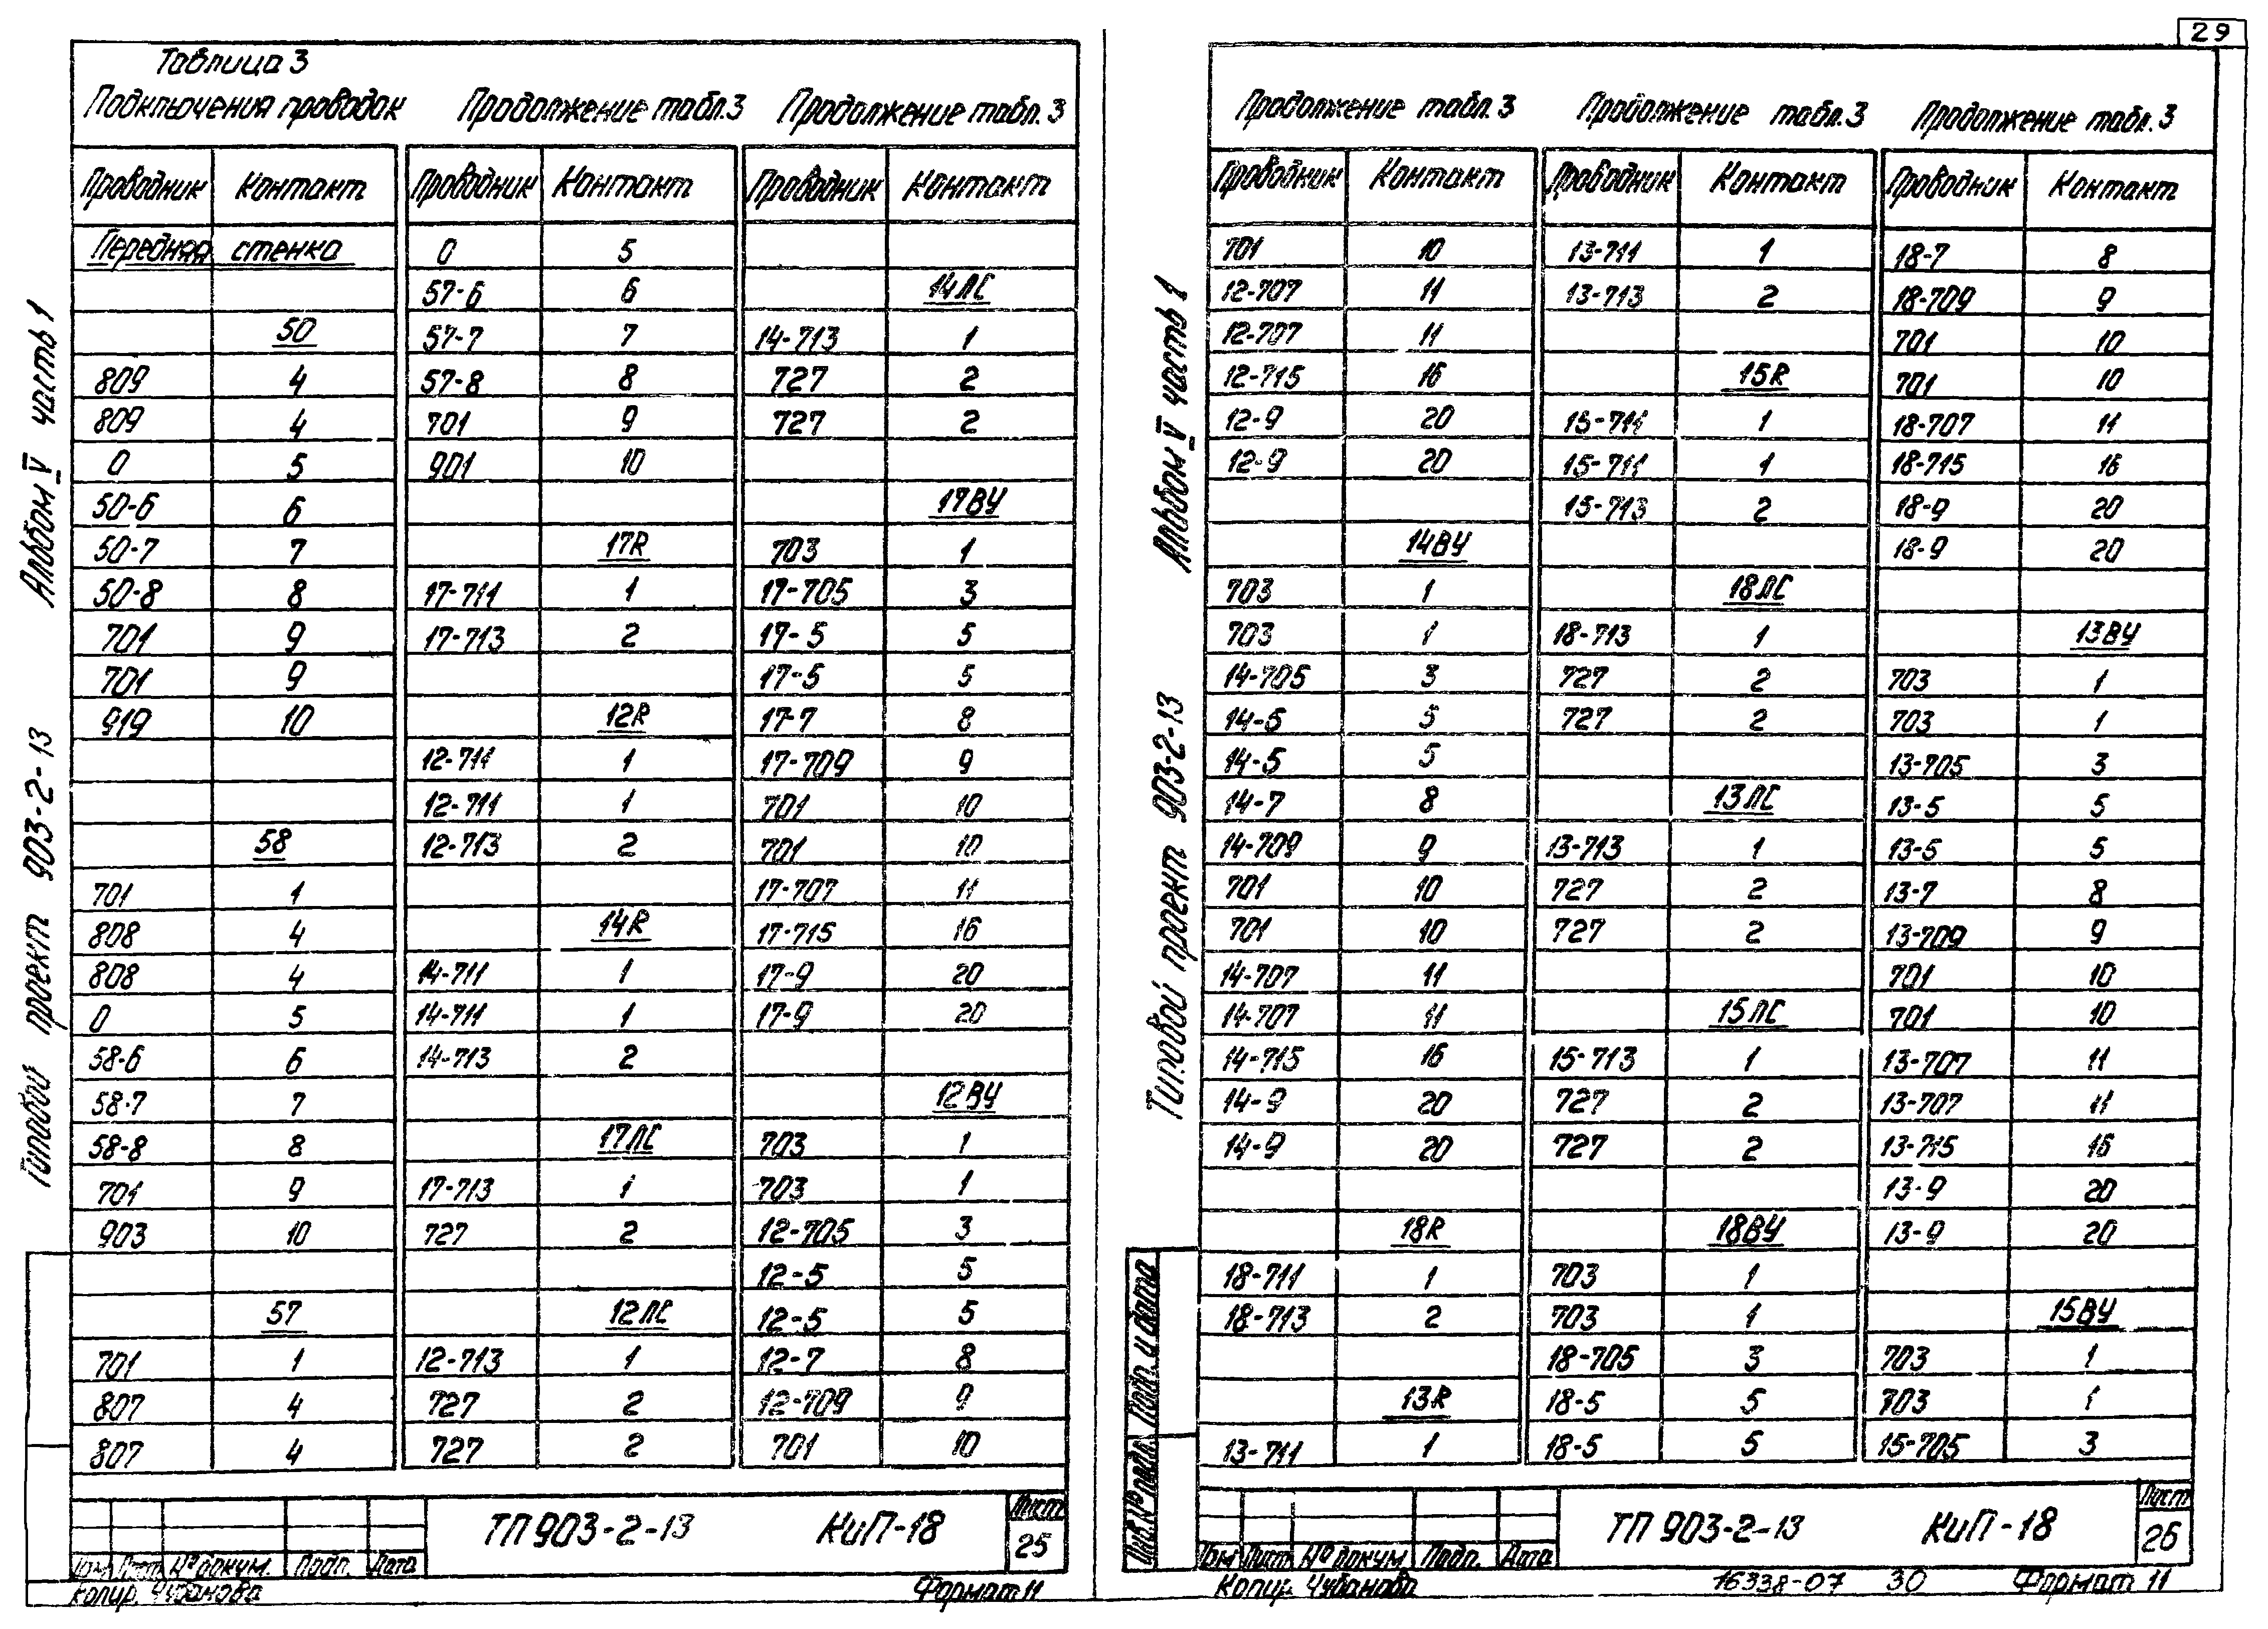 29
Таблица 3
Подключения проводок
Продолжение табл.3
Продолжение табл.3
Проводник Контакт Проводник Контакт Проводник Контакт
Передняя стенка 0 5
57-6 6 14ЛС
50 57-7 7 14-713 1
809 4 57-8 8 727 2
809 4 701 9 727 2
0 5 901 10
50-6 6 17ВУ
50-7 7 17R 703 1
50-8 8 17-711 1 17-705 3
701 9 17-713 2 17-5 5
701 9 17-5 5
919 10 12R 17-7 8
12-711 1 17-709 9
12-711 1 701 10
58 12-713 2 701 10
701 1 17-707 11
808 4 14R 17-715 16
808 4 14-711 1 17-9 20
0 5 14-711 1 17-9 20
58-6 6 14-713 2
58-7 7 12ВУ
58-8 8 17ЛС 703 1
701 9 17-713 1 703 1
903 10 727 2 12-705 3
12-5 5
57 12ЛС 12-5 5
701 1 12-713 1 12-7 8
807 4 727 2 12-709 9
807 4 727 2 701 10
Альбом V часть 1
Типовой проект 903-2-13
ТП 903-2-13 КиП-18
Лист
25
Изм Лист № докум. Подп. Дата
Копир. Чубанова Формат 11
Продолжение табл.3
Продолжение табл.3
Продолжение табл.3
Проводник Контакт Проводник Контакт Проводник Контакт
701 10 13-711 1 18-7 8
12-707 11 13-713 2 18-709 9
12-707 11 701 10
12-715 16 15R 701 10
12-9 20 15-711 1 18-707 11
12-9 20 15-711 1 18-715 16
15-713 2 18-9 20
14ВУ 18-9 20
703 1 18ЛС
703 1 18-713 1 13ВУ
14-705 3 727 2 703 1
14-5 5 727 2 703 1
14-5 5 13-705 3
14-7 8 13ЛС 13-5 5
14-709 9 13-713 1 13-5 5
701 10 727 2 13-7 8
701 10 727 2 13-709 9
14-707 11 701 10
14-707 11 15ЛС 701 10
14-715 16 15-713 1 13-707 11
14-9 20 727 2 13-707 11
14-9 20 727 2 13-715 16
13-9 20
18R 18ВУ 13-9 20
18-711 1 703 1
18-713 2 703 1 15ВУ
18-705 3 703 1
13R 18-5 5 703 1
13-711 1 18-5 5 15-705 3
Альбом V часть 1
Типовой проект 903-2-13
Инв.№ подл. Подп. и дата
ТП 903-2-13 КиП-18
Лист
26
Изм Лист № докум Подп. Дата
Копир. Чубанова 16338-07 30 Формат 11